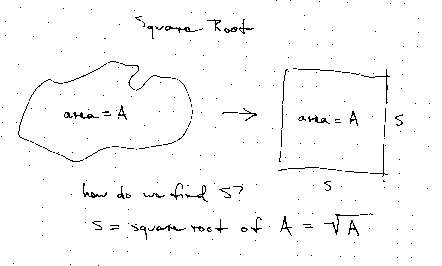 Square Root
area = A
area = A
s
s
how do we find s?
s = square root of A = √A